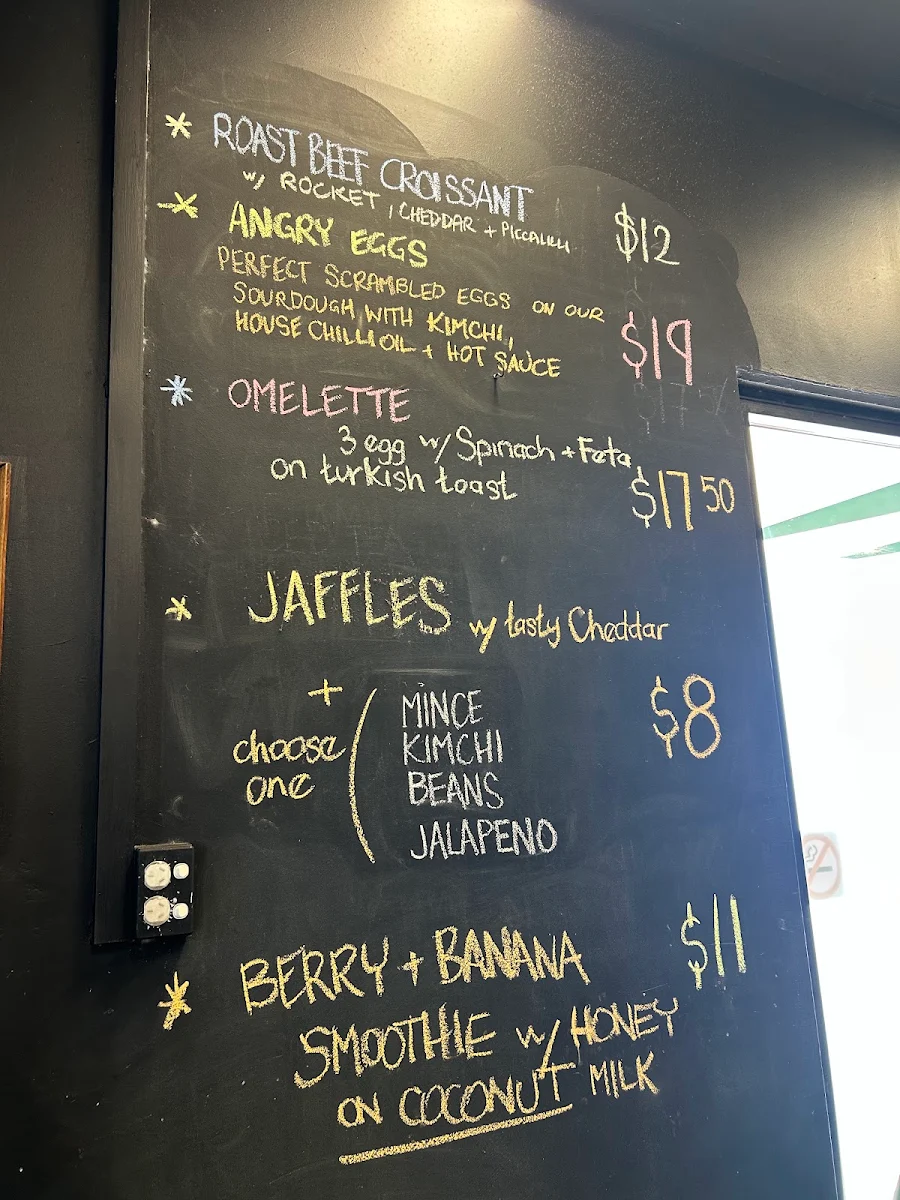 * ROAST BEEF CROISSANT
w/ ROCKET, CHEDDAR + PICCALILLI
$12
* ANGRY EGGS
PERFECT SCRAMBLED EGGS ON OUR
SOURDOUGH WITH KIMCHI,
HOUSE CHILLI OIL + HOT SAUCE
$19
* OMELETTE
3 egg w/ Spinach + Feta
on turkish toast
$17 50
* JAFFLES w/ tasty Cheddar
+
choose
one
MINCE
KIMCHI
BEANS
JALAPENO
$8
* BERRY + BANANA
$11
SMOOTHIE w/ HONEY
ON COCONUT MILK